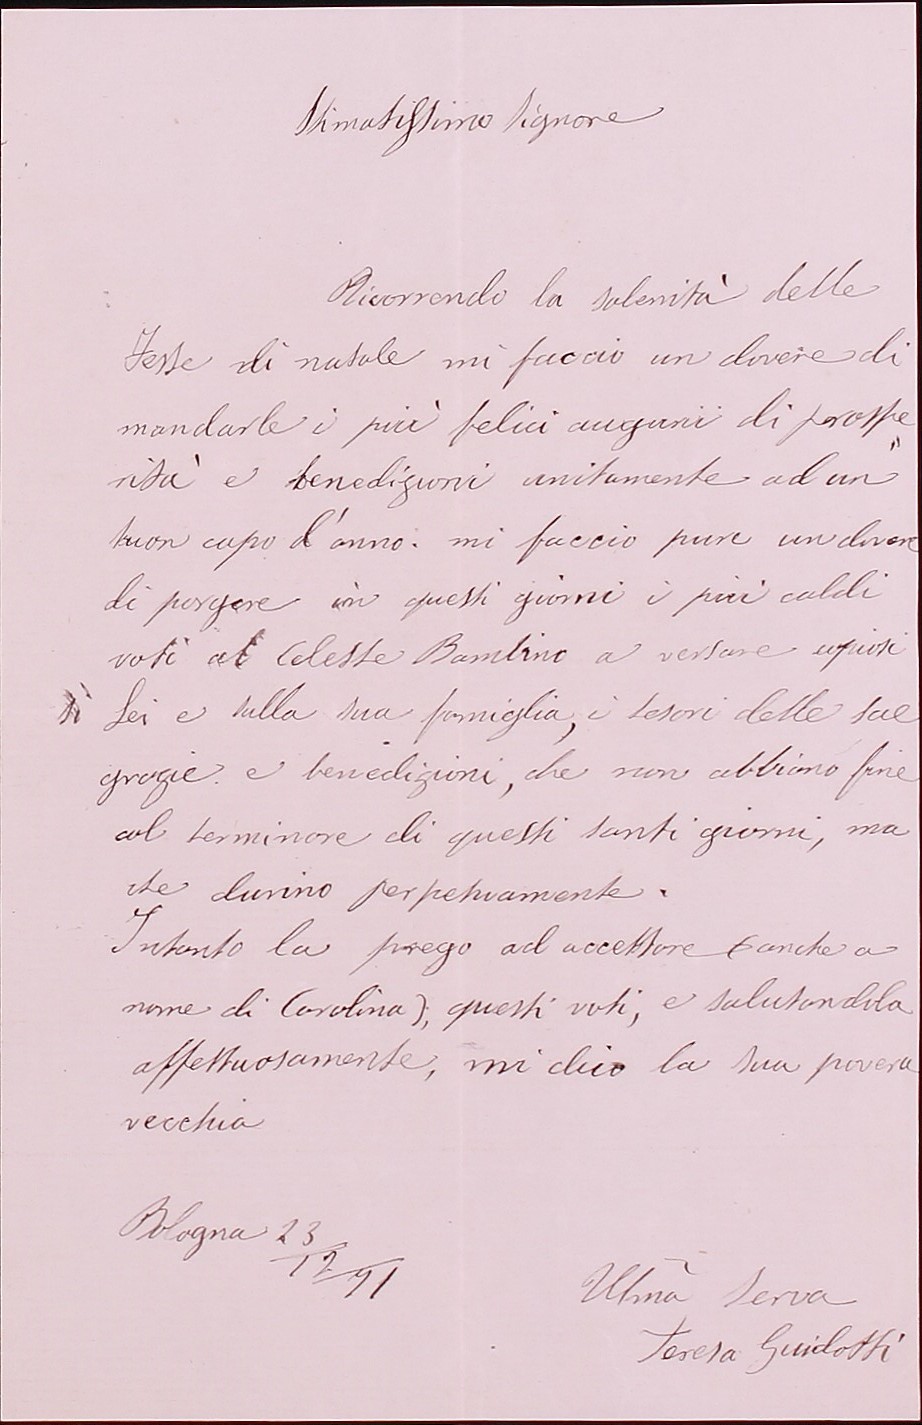 Stimatissimo Signore
Ricorrendo la solenità delle
Feste di natale mi faccio un dovere di
mandarle i più felici augurii di prospe
rità e benedizioni unitamente ad un"
buon capo d'anno. mi faccio pure un dovere
di porgere in questi giorni i più caldi
voti al Celeste Bambino a versare copiosi
Lei e sulla sua famiglia, i tesori delle sue
grazie e benedizioni, che non abbiano fine
col terminare di questi santi giorni, ma
che durino perpetuamente.
Intanto la prego ad accettare (anche a
nome di Carolina); questi voti, e salutandola
affettuosamente, mi dico la sua povera
vecchia
Bologna 23/12/91
Ulma Serva
Teresa Guidotti